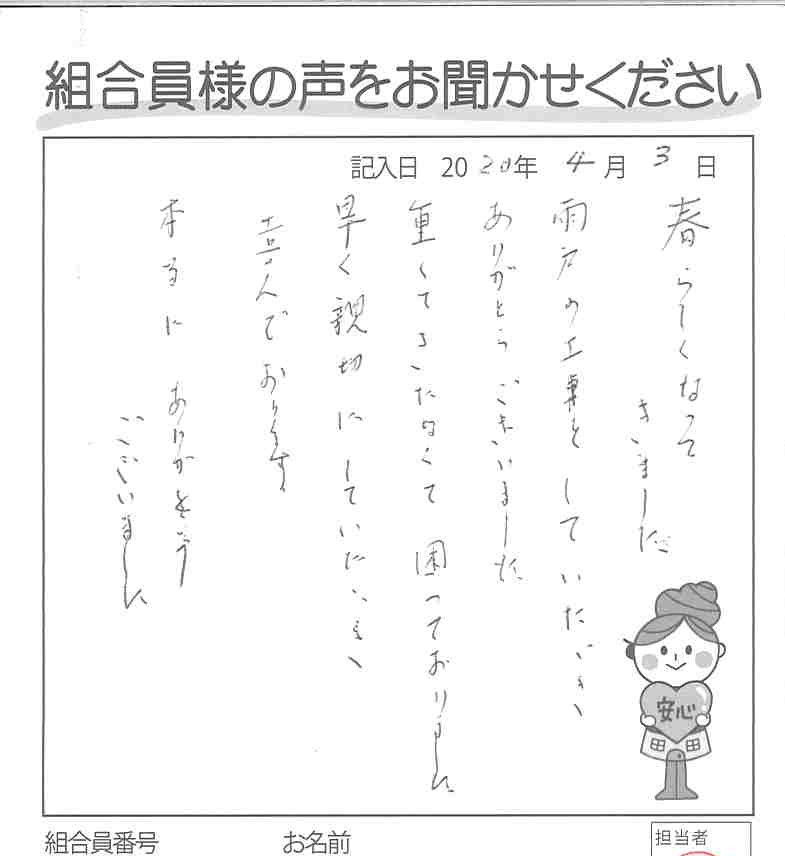 組合員様の声をお聞かせください
記入日 2020年 4月 3日
春らしくなって
きました
雨戸の工事をしていただき
ありがとうございました
重くてきたなくて 困っておりました
早く親切にしていただき
喜んでおります
本当に ありがとう
ございました
安心
組合員番号 お名前
担当者